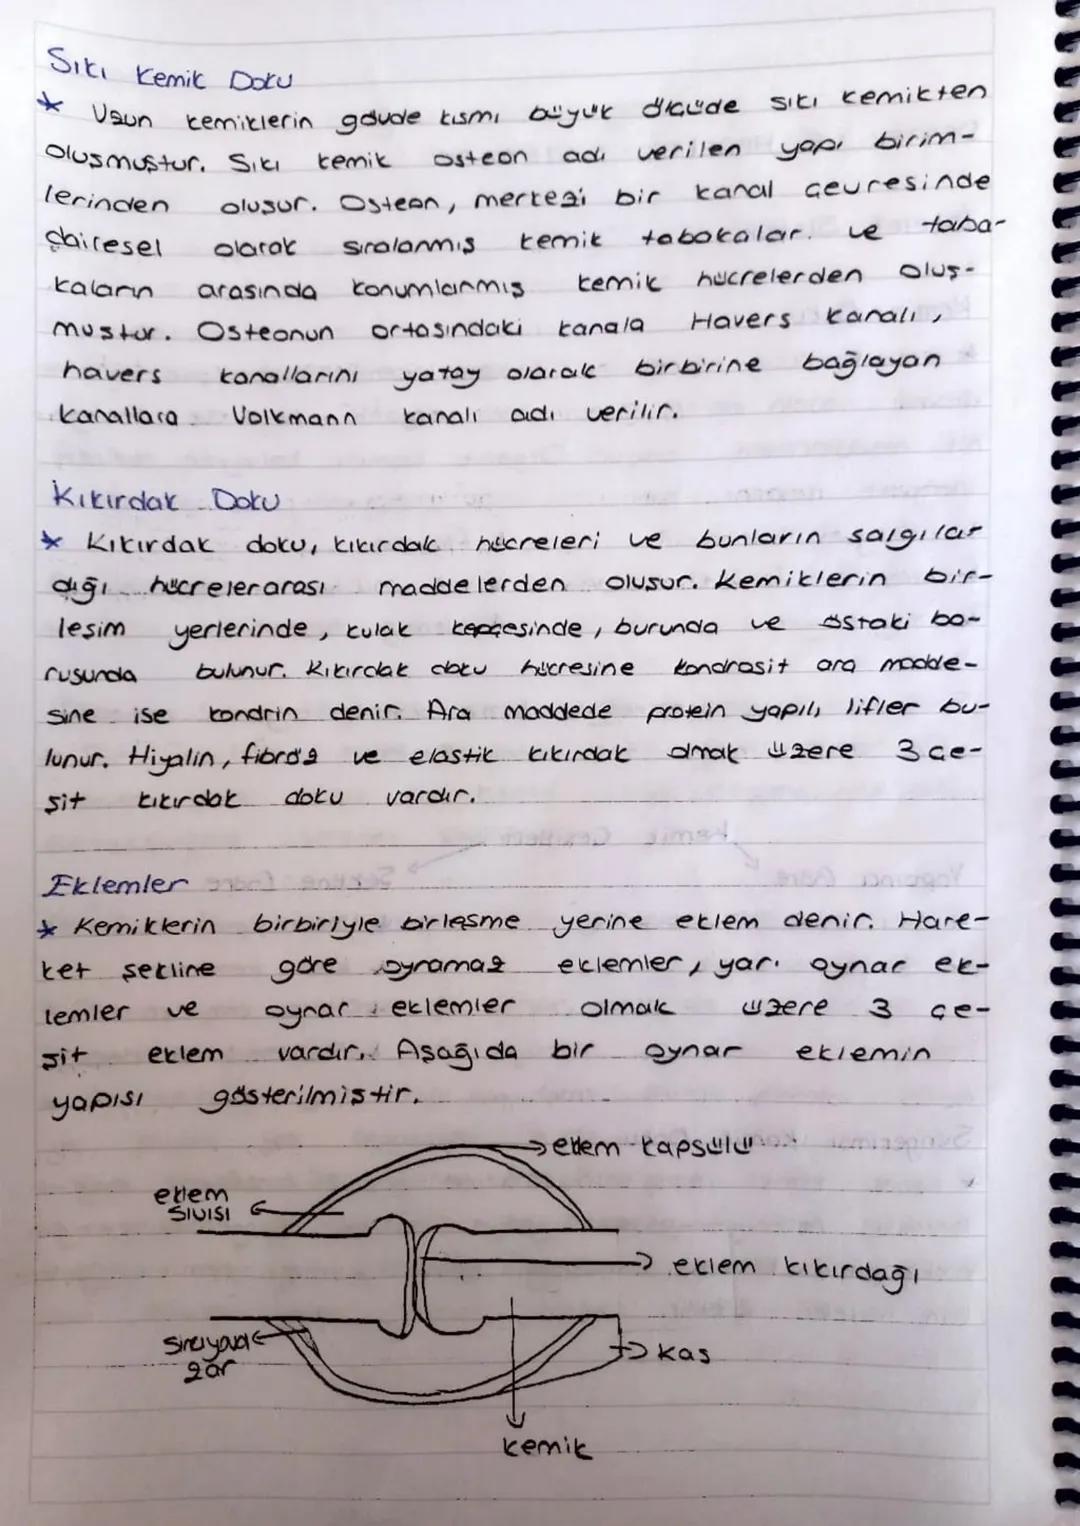 Sıkı Kemik Doku
* Uzun kemiklerin gövde kısmı büyük ölçüde sıkı kemikten
oluşmuştur. Sıkı kemik osteon adı verilen yapı birim-
lerinden oluşur. Osteon, merkezi bir kanal çevresinde
dairesel olarak sıralanmış kemik tabakalar. ve taba-
kaların arasında konumlanmış kemik hücrelerden oluş-
muştur. Osteonun ortasındaki kanala Havers kanalı,
havers kanallarını yatay olarak birbirine bağlayan
kanallara Volkmann kanalı adı verilir.
Kıkırdak Doku
* Kıkırdak doku, kıkırdak hücreleri ve bunların salgılar
dığı hücrelerarası maddelerden oluşur. Kemiklerin bir-
leşim yerlerinde, kulak kepçesinde, burunda ve östaki bo-
rusunda bulunur. Kıkırdak doku hücresine kondrosit ara madde-
sine ise kondrin denir. Ara maddede protein yapılı lifler bu-
lunur. Hiyalin, fibröz ve elastik kıkırdak olmak üzere 3 çe-
şit kıkırdak doku vardır.
Eklemler
* Kemiklerin birbiriyle birleşme yerine eklem denir. Hare-
ket şekline göre oynamaz eklemler, yarı oynar ek-
lemler ve oynar eklemler olmak üzere 3 çe-
şit eklem vardır. Aşağıda bir oynar eklemin
yapısı gösterilmiştir.
eklem kapsülü
eklem
sıvısı
eklem kıkırdağı
zar
kas
kemik